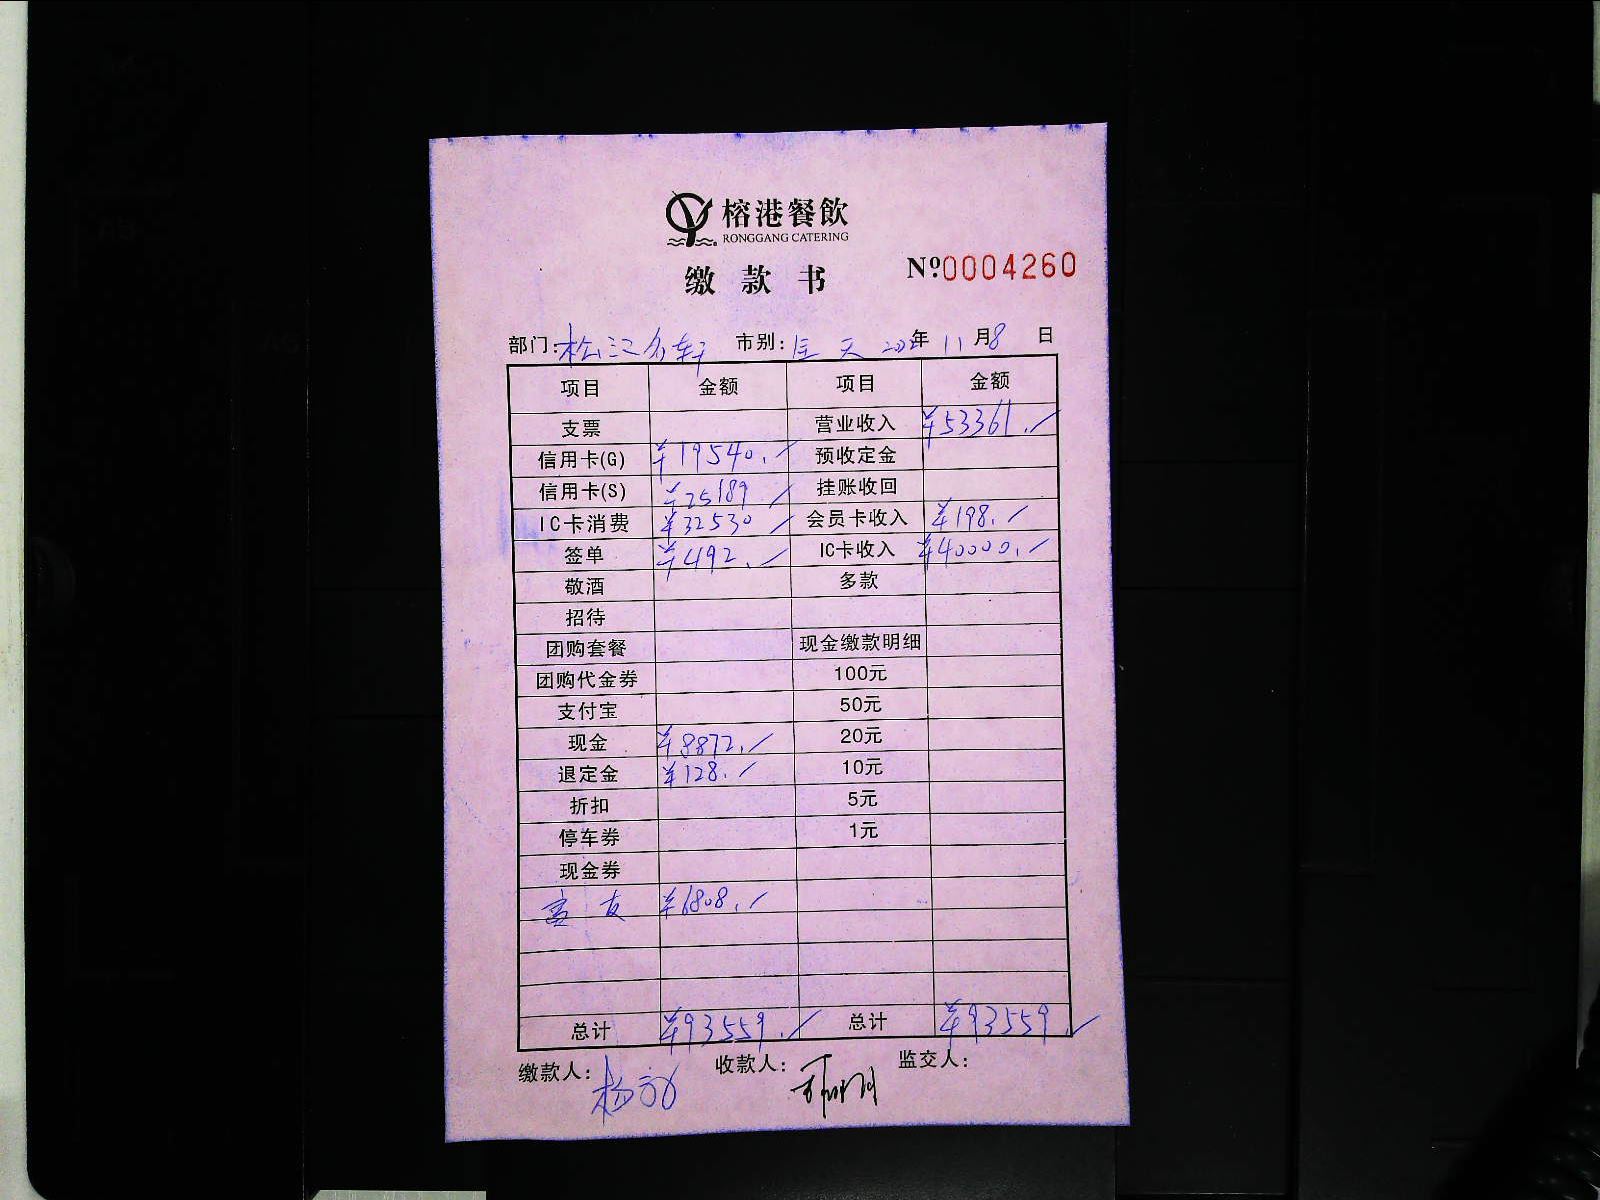 榕港餐飲
RONGGANG CATERING
缴款书 №0004260
部门:松江名轩 市别:全天 年 11月8日
项目 金额 项目 金额
支票 营业收入 ¥53361.
信用卡(G) ¥19540. 预收定金
信用卡(S) ¥25189 挂账收回
IC卡消费 ¥32530 会员卡收入 ¥198.
签单 ¥492. IC卡收入 ¥40000.
敬酒 多款
招待
团购套餐 现金缴款明细
团购代金券 100元
支付宝 50元
现金 ¥8872. 20元
退定金 ¥128. 10元
折扣 5元
停车券 1元
现金券
¥6808.
总计 ¥93559. 总计 ¥93559.
缴款人: 收款人: 监交人: